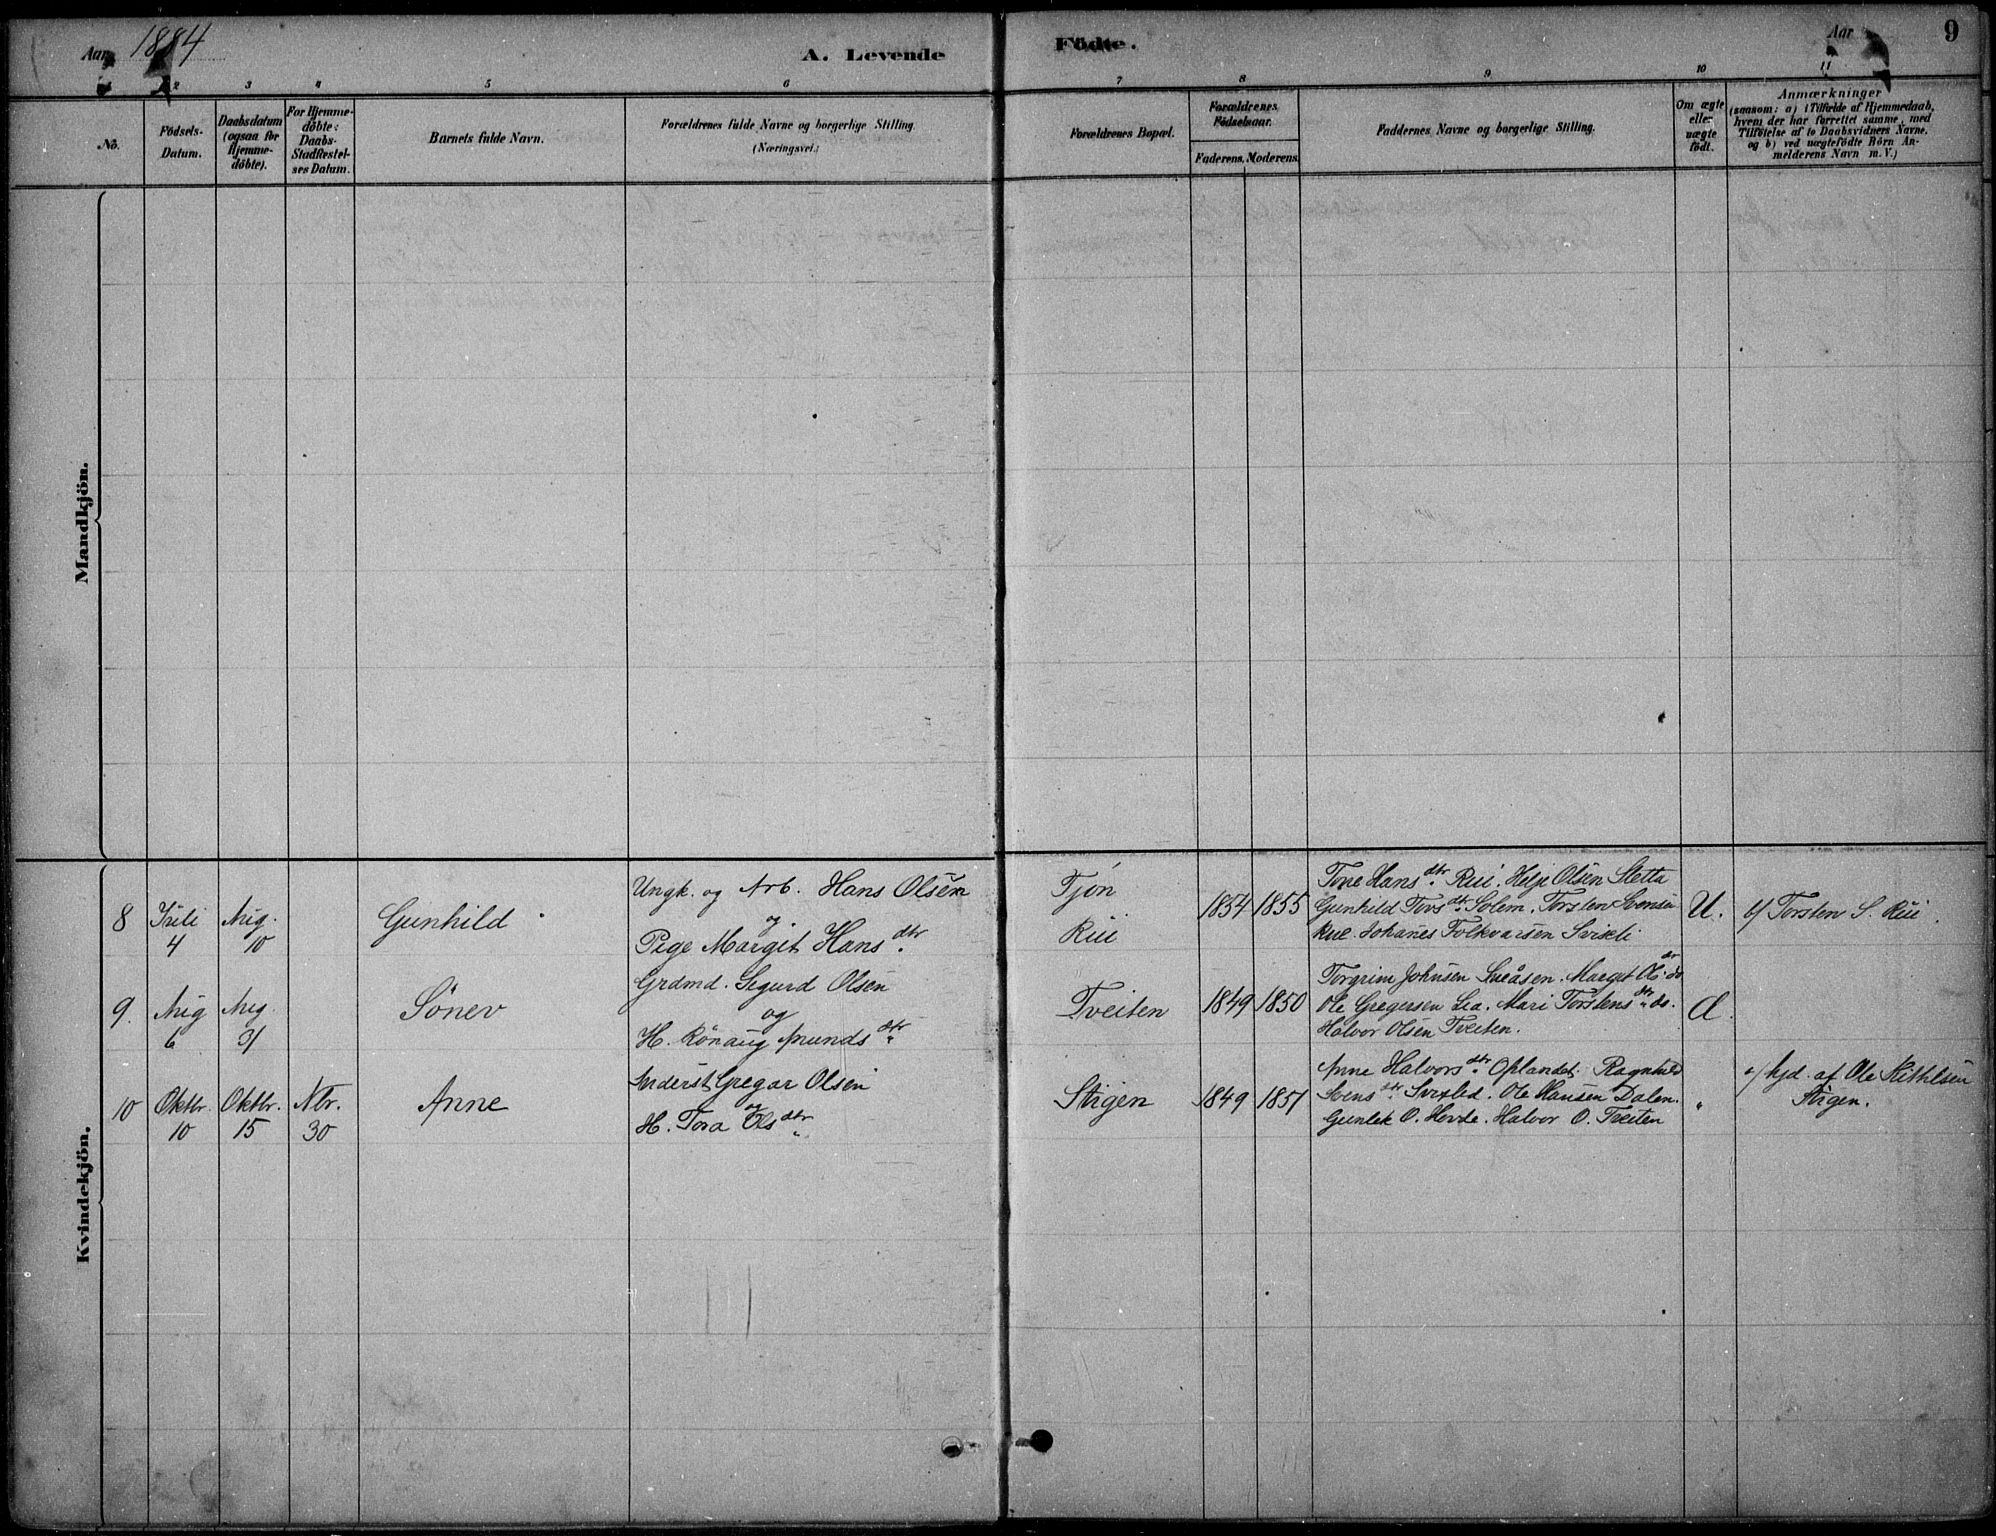 Aar 1884
A. Levende
Födte.
Aar
9
1 2 3 4 5 6 7 8 9 10 11
No.
Födsels-
Datum.
Daabsdatum
(ogsaa for
Hjemme-
döbte).
For Hjemme-
döbte:
Daabs-
Stadfæstel-
ses Datum.
Barnets fulde Navn.
Forældrenes fulde Navne og borgerlige Stilling.
(Næringsvei.)
Forældrenes Bopæl.
Forældrenes
Födselsaar.
Faderens. Moderens.
Faddernes Navne og borgerlige Stilling.
Om ægte
eller
uægte
födt.
Anmærkninger
(saasom: a) i Tilfælde af Hjemmedaab,
hvem der har forrettet samme, med
Tilföielse af to Daabsvidners Navne,
og b) ved uægtefödte Börn An-
melderens Navn m. V.)
Mandkjön.
Kvindekjön.
8 Juli 4 Aug. 10 Gunhild
Ungk. og Arb. Hans Olsen
og
Pige Margit Hansdtr.
Tjøn
Rui
1854 1855
Tone Hansdtr. Rui. Helje Olsen Sletta
Gunhild Tovsdtr. Solem. Torsten Svensen
Rue. Johanes Folkvarsen Svisli
U. b/ Torsten S. Rui.
9. Aug 6 Aug. 31 Sønev
Grdmd. Sigurd Olsen
og
H. Rønaug Amundsdtr.
Tveiten 1849 1850
Torgrim Johnsen Sneåsen. Margit Olsdtr. do
Ole Gregersen Lia. Mari Torstensdtr. do.
Halvor Olsen Tveiten.
Æ.
10 Oktbr. 10 Oktbr. 15 Nbr. 30 Anne
Inderst Gregar Olsen
og
H. Tora Olsdtr.
Stigen 1849 1851
Anne Halvorsdtr. Oplandet. Ragnhild
Svensdtr. Svisled. Ole Hansen Dalen.
Gunlek O. Hovde. Halvor O. Tveiten
"
a/ hjd. af Ole Kithilsen
Stigen.